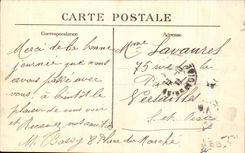 CARTE POSTALE
Correspondance
Adresse
Merci de la bonne
journée que nous
avons passé avec
vous, à bientôt le
plaisir de vous voir
et Recevez nos amitiés
M. Bassy 8 Place du Marché
Mme Lavaures
75 rue de la
Versailles
S. et Oise